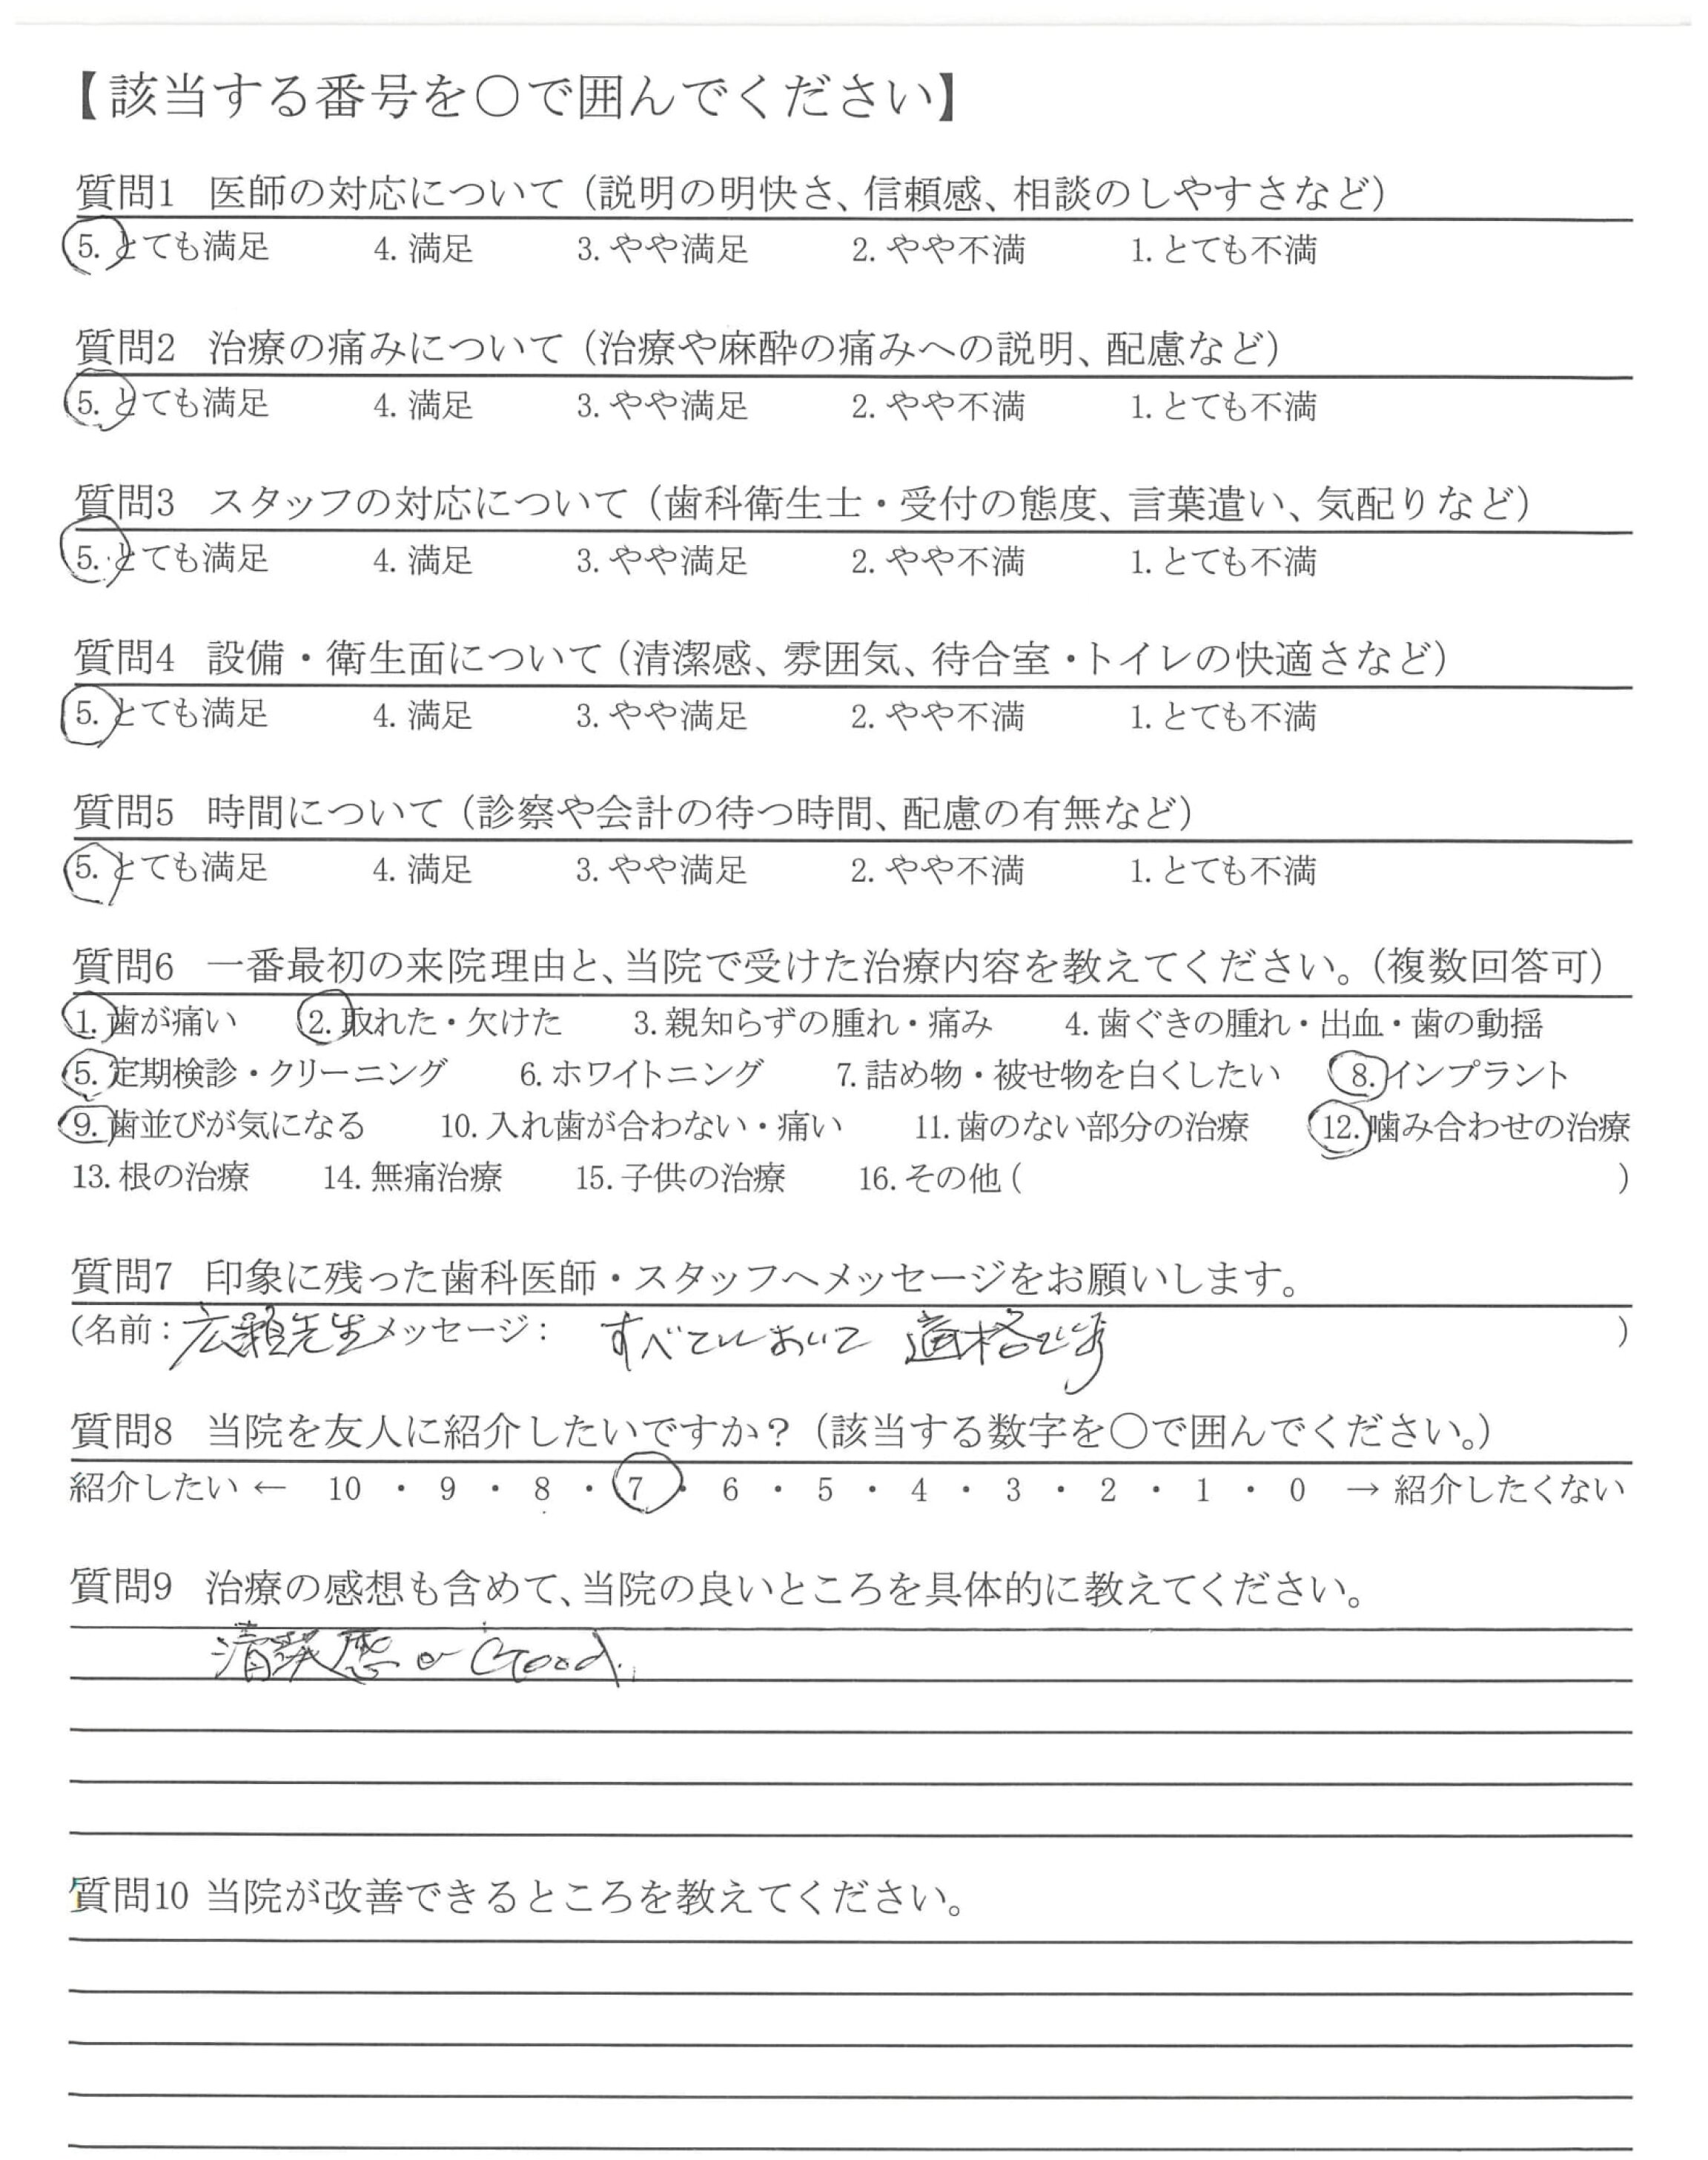 【該当する番号を○で囲んでください】
質問1 医師の対応について（説明の明快さ、信頼感、相談のしやすさなど）
5. とても満足 4. 満足 3. やや満足 2. やや不満 1. とても不満
質問2 治療の痛みについて（治療や麻酔の痛みへの説明、配慮など）
5. とても満足 4. 満足 3. やや満足 2. やや不満 1. とても不満
質問3 スタッフの対応について（歯科衛生士・受付の態度、言葉遣い、気配りなど）
5. とても満足 4. 満足 3. やや満足 2. やや不満 1. とても不満
質問4 設備・衛生面について（清潔感、雰囲気、待合室・トイレの快適さなど）
5. とても満足 4. 満足 3. やや満足 2. やや不満 1. とても不満
質問5 時間について（診察や会計の待つ時間、配慮の有無など）
5. とても満足 4. 満足 3. やや満足 2. やや不満 1. とても不満
質問6 一番最初の来院理由と、当院で受けた治療内容を教えてください。（複数回答可）
1. 歯が痛い 2. 取れた・欠けた 3. 親知らずの腫れ・痛み 4. 歯ぐきの腫れ・出血・歯の動揺
5. 定期検診・クリーニング 6. ホワイトニング 7. 詰め物・被せ物を白くしたい 8. インプラント
9. 歯並びが気になる 10. 入れ歯が合わない・痛い 11. 歯のない部分の治療 12. 噛み合わせの治療
13. 根の治療 14. 無痛治療 15. 子供の治療 16. その他（ ）
質問7 印象に残った歯科医師・スタッフへメッセージをお願いします。
（名前： 先生 メッセージ： すべてにおいて 適格です ）
質問8 当院を友人に紹介したいですか？（該当する数字を○で囲んでください。）
紹介したい ← 10 ・ 9 ・ 8 ・ 7 ・ 6 ・ 5 ・ 4 ・ 3 ・ 2 ・ 1 ・ 0 → 紹介したくない
質問9 治療の感想も含めて、当院の良いところを具体的に教えてください。
清潔感 Good.
質問10 当院が改善できるところを教えてください。